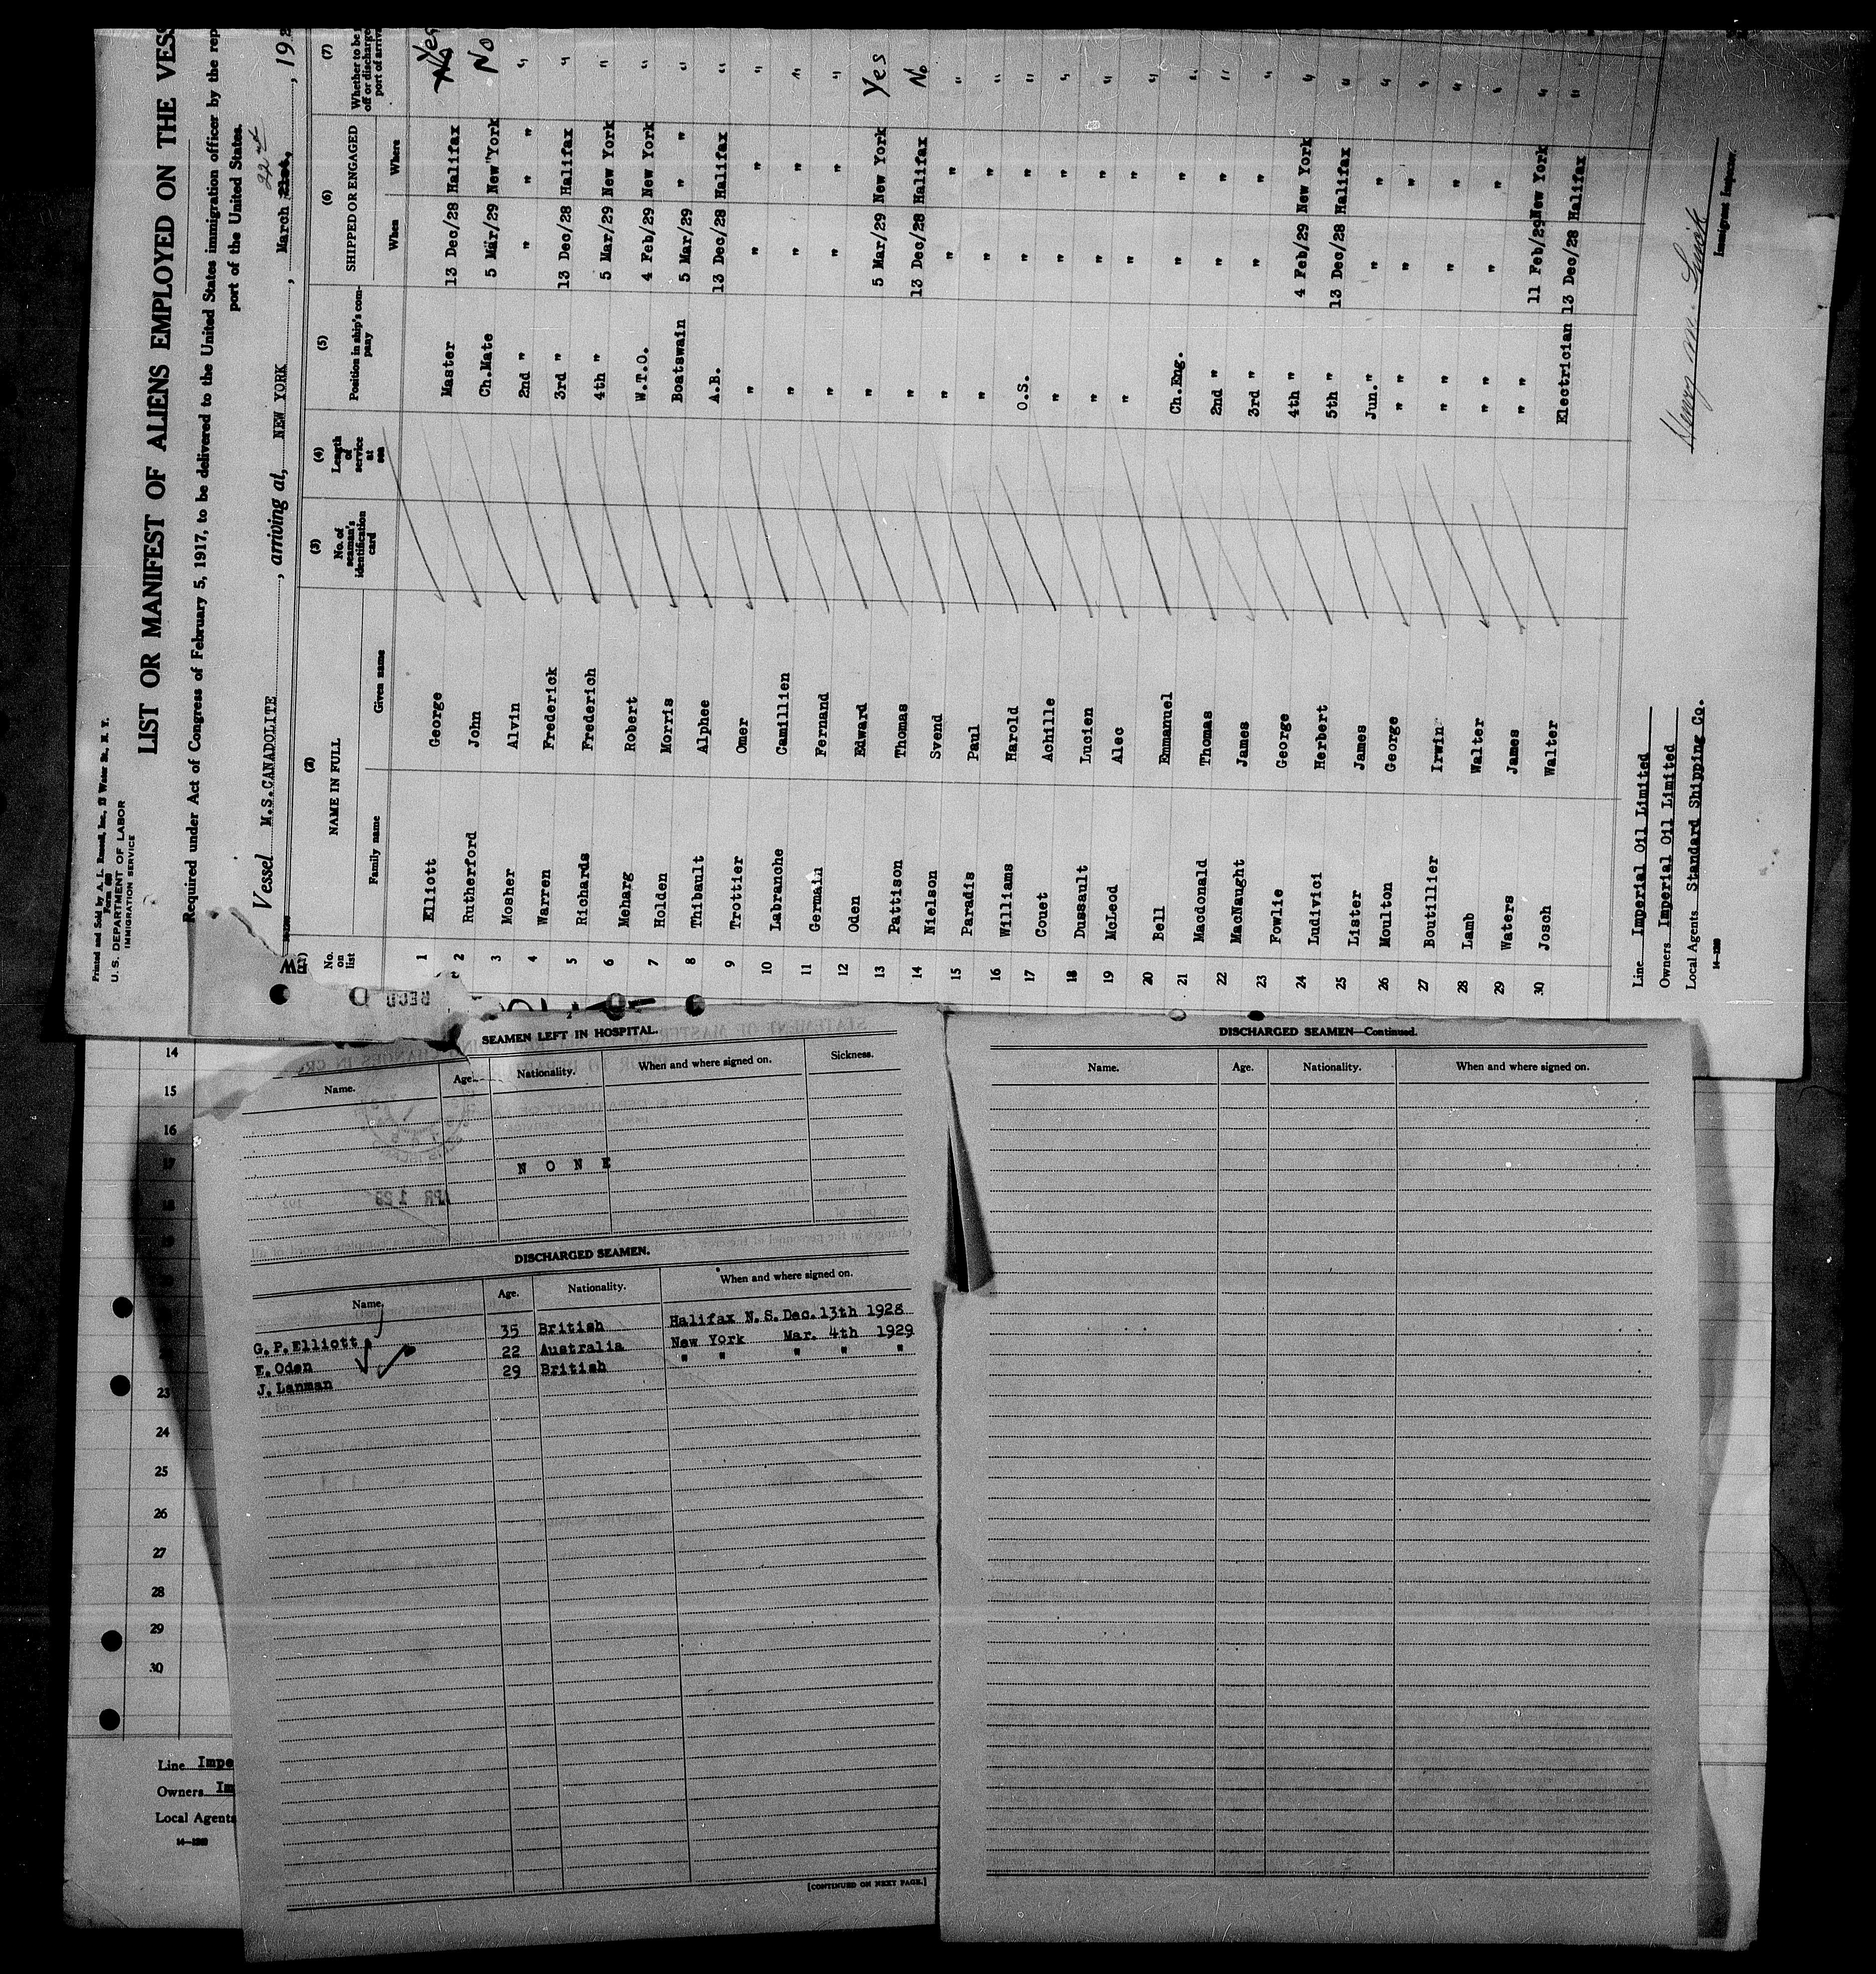 Printed and Sold by A. L. Russell, Inc., Water St., N. Y.
Form 680
U. S. DEPARTMENT OF LABOR
IMMIGRATION SERVICE
LIST OR MANIFEST OF ALIENS EMPLOYED ON THE VESS
Required under Act of Congress of February 5, 1917, to be delivered to the United States immigration officer by the rep
port of the United States.
22nd
Vessel M.S.CANADOLITE, arriving at, NEW YORK, March 21st, 192
(1) (2) (3) (4) (5) (6) (7)
No. on list NAME IN FULL No. of seaman's identification card Length of service at sea Position in ship's company SHIPPED OR ENGAGED Whether to be off or discharge port of arriva
Family name Given name When Where
1 Elliott George Master 13 Dec/28 Halifax No Yes
2 Rutherford John Ch.Mate 5 Mar/29 New York No
3 Mosher Alvin 2nd " " " "
4 Warren Frederick 3rd " 13 Dec/28 Halifax "
5 Richards Frederich 4th " 5 Mar/29 New York "
6 Meharg Robert W.T.O. 4 Feb/29 New York "
7 Holden Morris Boatswain 5 Mar/29 " "
8 Thibault Alphee A.B. 13 Dec/28 Halifax "
9 Trottier Omer " " " "
10 Labranche Camillien " " " "
11 Germain Fernand " " " "
12 Oden Edward " 5 Mar/29 New York Yes
13 Pattison Thomas " 13 Dec/28 Halifax No
14 Nielson Svend " " " "
15 Paradis Paul " " " "
16 Williams Harold O.S. " " "
17 Couet Achille " " " "
18 Dussault Lucien " " " "
19 McLeod Alec " " " "
20 Bell Emmanuel Ch.Eng. " " "
21 Macdonald Thomas 2nd " " " "
22 MacNaught James 3rd " " " "
23 Fowlie George 4th " 4 Feb/29 New York "
24 Ludivici Herbert 5th " 13 Dec/28 Halifax "
25 Lister James Jun." " " "
26 Moulton George " " " "
27 Boutillier Irwin " " " "
28 Lamb Walter " " " "
29 Waters James " 11 Feb/29 New York "
30 Josch Walter Electrician 13 Dec/28 Halifax "
Line Imperial Oil Limited
Owners Imperial Oil Limited
Local Agents Standard Shipping Co.
14-1289
Henry
Immigrant Inspector.
RECD
SEAMEN LEFT IN HOSPITAL.
Name. Age. Nationality. When and where signed on. Sickness.
N O N E
APR 1 29
DISCHARGED SEAMEN.
Name. Age. Nationality. When and where signed on.
G.P.Elliott 35 British Halifax N.S.Dec.13th 1928
E.Oden 22 Australia New York Mar. 4th 1929
J.Lanman 29 British " " " " "
[CONTINUED ON NEXT PAGE.]
DISCHARGED SEAMEN—Continued.
Name. Age. Nationality. When and where signed on.
14
15
16
17
18
19
23
24
25
26
27
28
29
30
Line Impe
Owners Im
Local Agents
14-1289